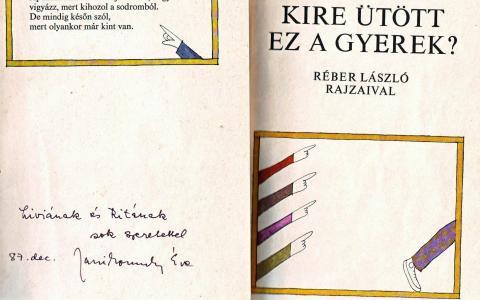 vigyázz, mert kihozol a sodromból.
De mindig későn szól,
mert olyankor már kint van.
Liviának és Ritának
sok szeretettel
87. dec. Janikovszky Éva
KIRE ÜTÖTT
EZ A GYEREK?
RÉBER LÁSZLÓ
RAJZAIVAL